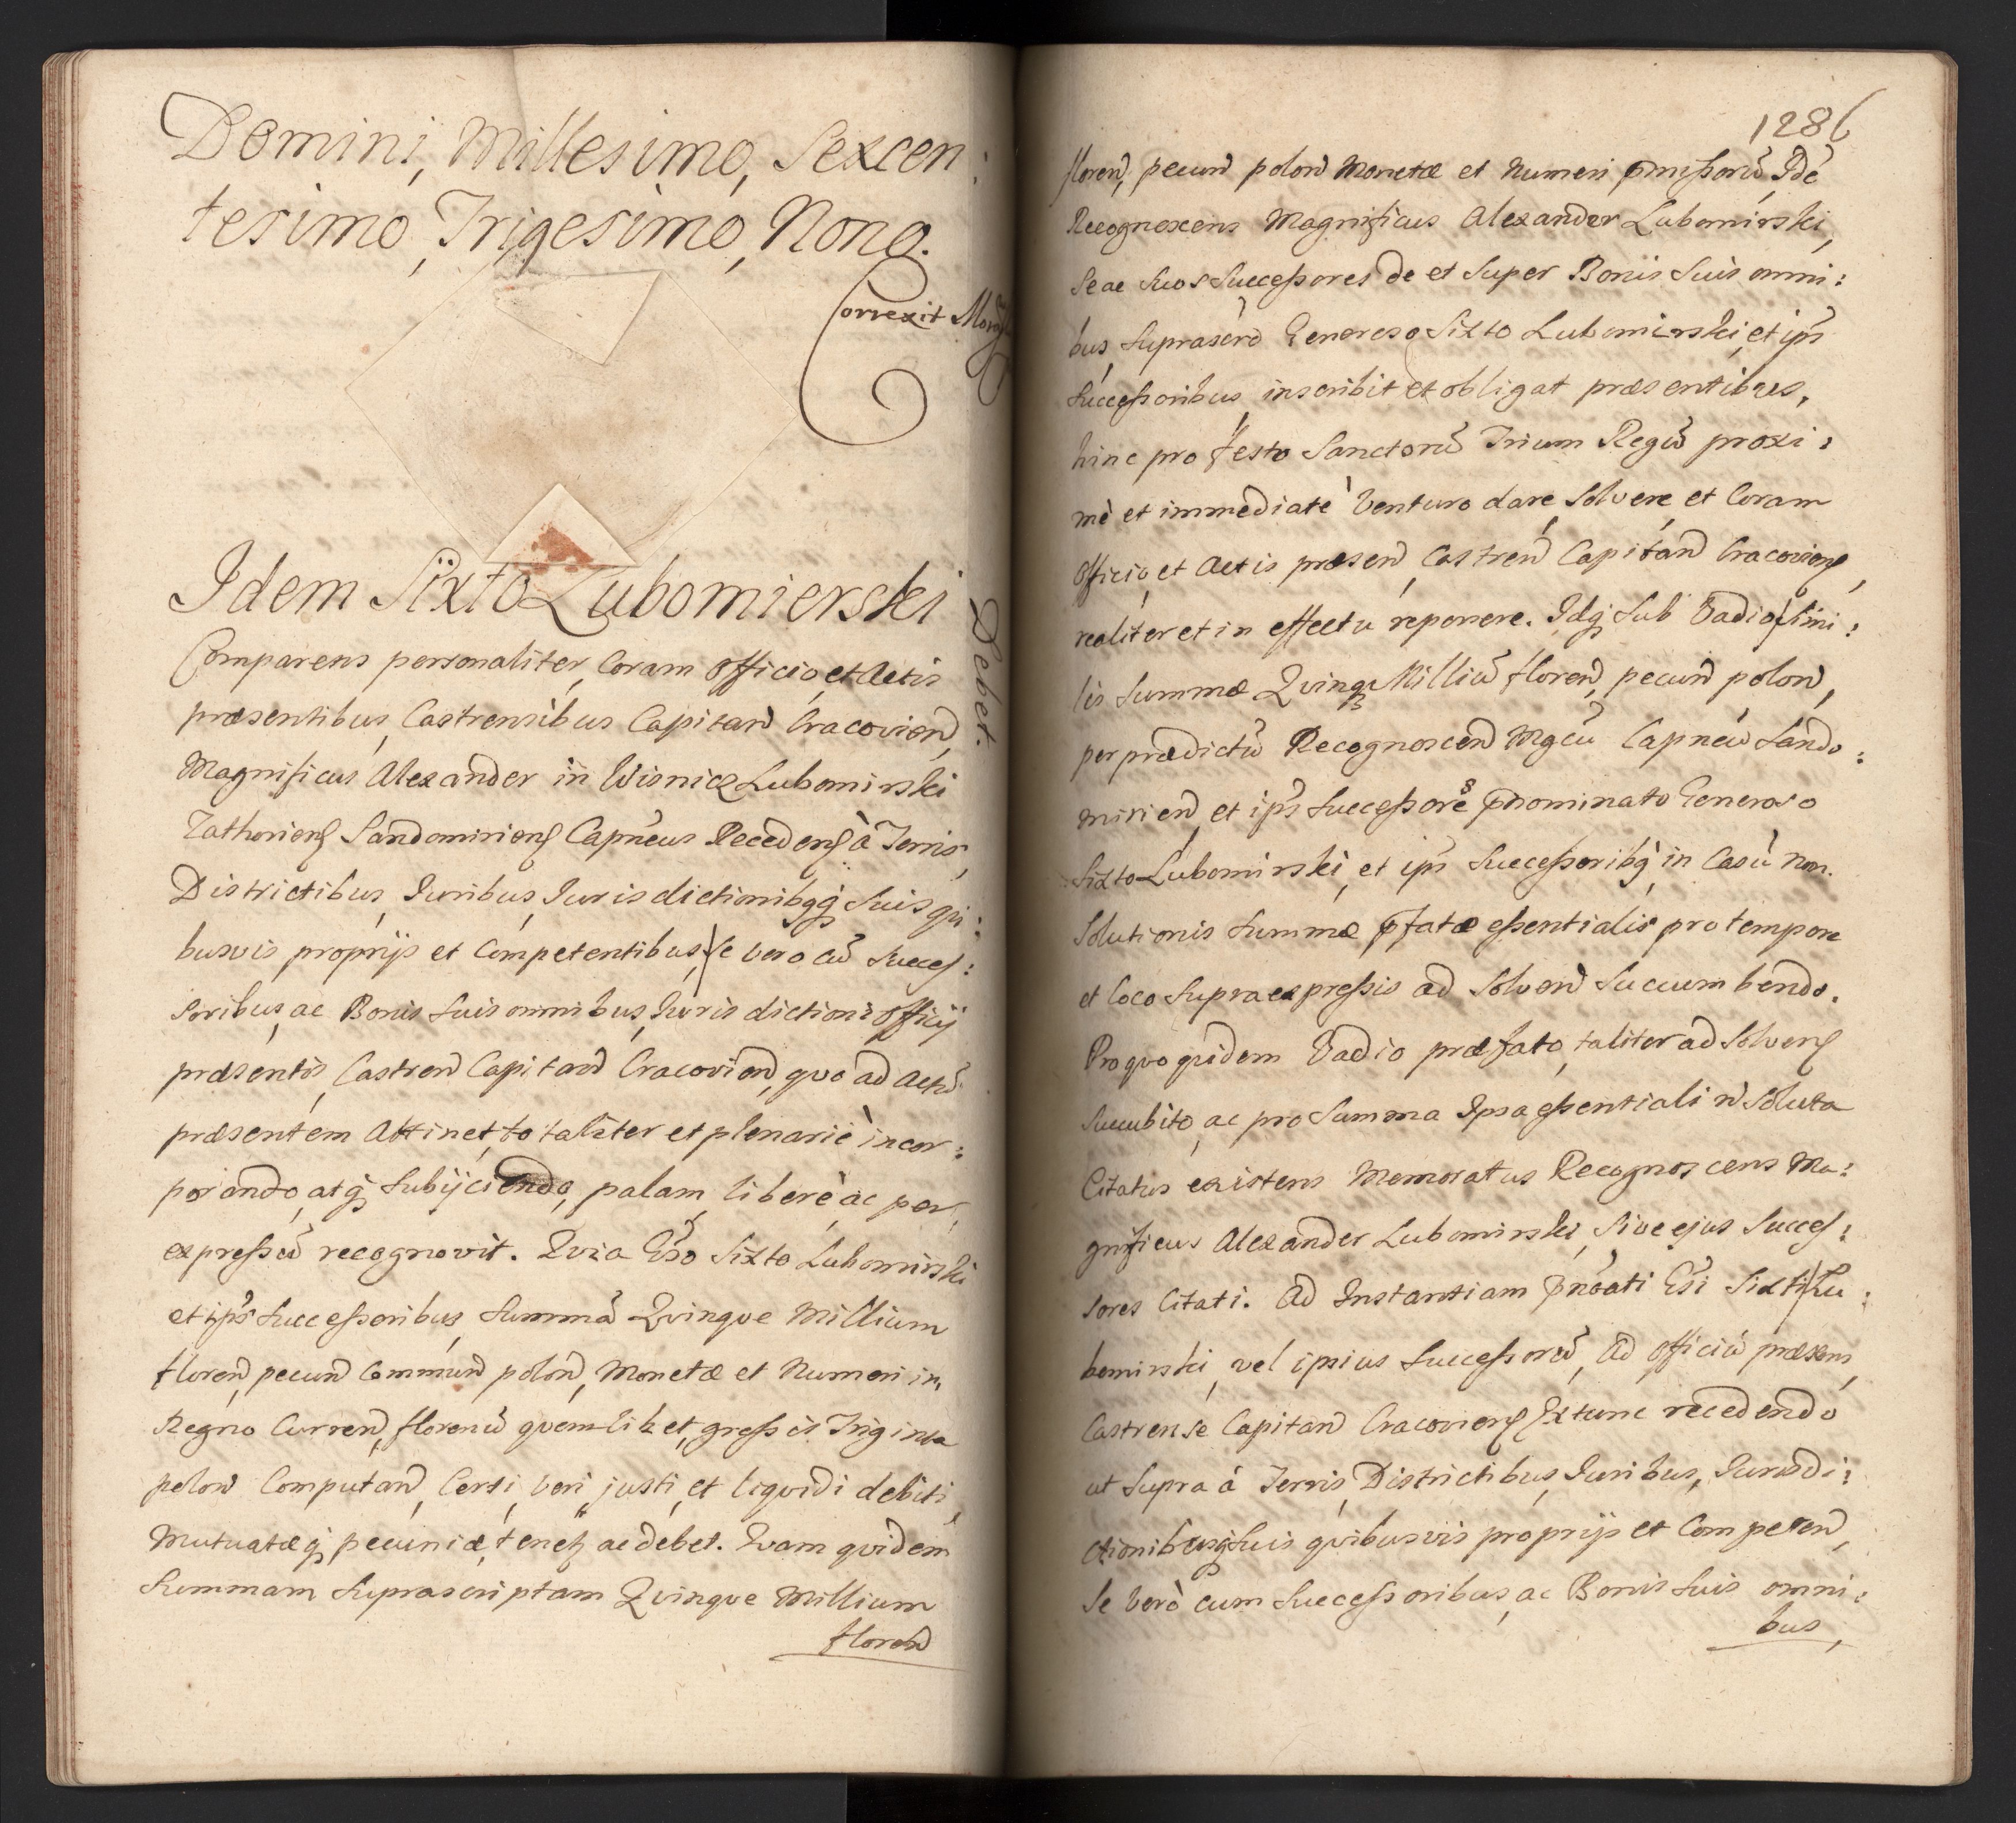 Domini, Millesimo, Sexcen:
tesimo, Trigesimo, Nono.
Correxit
Idem Sixto Lubomierski
Debet.
Comparens personaliter, Coram Officio, et Actis
præsentibus, Castrensibus Capitan̄ Cracovien̄,
Magnificus Alexander in Wisnicz Lubomirski
Zathorien̄ Sandomirien̄ Capn̄eus Recedens à Terris,
Districtibus, Juribus, Jurisdictionibqq̃ Suis qui:
busvis proprijs et Competentibus, Se vero cū Succes:
soribus, ac Bonis Suis omnibus, Jurisdictioni Officij
præsentis, Castren̄ Capitan̄ Cracovien̄, quo ad actū
præsentem Attinet, totaliter et plenariè incor:
porando, atq̃ Subijciendo, palam, liberè ac per,
expressū recognovit. Quia Gñso Sixto Lubomirski
et ips̄ Successoribus, Summā Quinque Millium
floren̄, pecun̄ Commun̄ polon̄, Monetæ et Numeri in,
Regno Curren̄, florenū quemlibet, grossis Triginta
polon̄ Computan̄, Certi, veri, justi, et liquidi debiti,
Mutuatæq̃ pecuniæ, tenet̃ ac debet. Quam quidem
Summam Suprascriptam Quinque Millium
floren̄
1286
floren̄, pecun̄ polon̄ Monetæ et Numeri p̄missorū, Idē
Recognoscens Magnificus Alexander Lubomirski,
Se ac Suos Successores de et Super Bonis Suis omni:
bus, Suprascrō Generoso Sixto Lubomirski, et ips̄
Successoribus, inscribit et obligat præsentibus,
hinc pro festo Sanctorū Trium Regū proxi:
mè et immediatè Venturo dare, Solvere et Coram
Officio, et Actis præsen̄, Castren̄ Capitan̄ Cracovien̄,
realiter et in effectu reponere. Idq̃ Sub Vadio Simi:
lis Summæ Quinq̃ Milliū floren̄, pecun̄ polon̄,
per prædictū Recognoscen̄ Mgcū Capn̄eū Sando:
mirien̄, et ips̄ Successores p̄nominato Generoso
Sixto Lubomirski, et ips̄ Successoribq̃, in Casu non.
Solutionis Summæ p̄fatæ essentialis pro tempore
et loco Supra expressis ad Solven̄ Succumbendo.
Pro quo quidem Vadio præfato, taliter ad Solven̄
Succubito, ac pro Summa Ipsa essentiali n̄ Soluta
Citatus existens Memoratus Recognoscens Ma:
gnificus Alexander Lubomirski, Sive ejus Succes:
sores Citati. Ad Instantiam p̄noāti Gñsi Sixti Lu:
bomirski, vel ipsius Successorū, Ad Officiū præsens,
Castrense Capitan̄ Cracovien̄ Extunc recedendo
ut Supra à Terris, Districtibus, Juribus, Jurisdi:
ctionibusq̃ Suis quibusvis proprijs et Competen̄,
Se verò cum Successoribus, ac Bonis Suis omni:
bus,